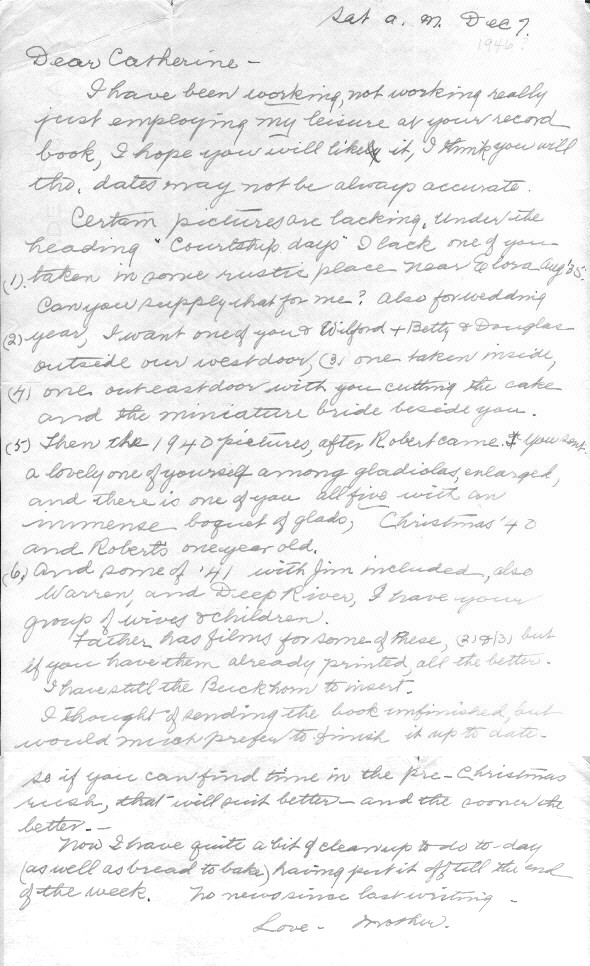 Sat a. m. Dec 7.
1946
Dear Catherine -
I have been working, not working really
just employing my leisure at your record
book, I hope you will like it, I think you will
tho, dates may not be always accurate.
Certain pictures are lacking. Under the
heading "Courtship days" I lack one of you
(1). taken in some rustic place near Elora Aug '35.
Can you supply that for me? Also for wedding
(2) year, I want one of you & Wilford + Betty & Douglas
outside our west door, (3) one taken inside,
(4) one out east door with you cutting the cake
and the miniature bride beside you.
(5) Then the 1940 pictures, after Robert came. You sent
a lovely one of yourself among gladiolas, enlarged,
and there is one of you all five with an
immense boquet of glads, Christmas '40
and Roberts one year old.
(6.) And some of '41 with Jim included, also
Warren, and Deep River, I have your
group of wives & children.
Father has films for some of these, (2) & (3) but
if you have them already printed, all the better.
I have still the Buckhorn to insert.
I thought of sending the book unfinished, but
would much prefer to finish it up to date -
so if you can find time in the pre-Christmas
rush, that will suit better - and the sooner the
better. -
Now I have quite a bit of cleanup to do to-day
(as well as bread to bake) having put it off till the end
of the week. No news since last writing -
Love - Mother.